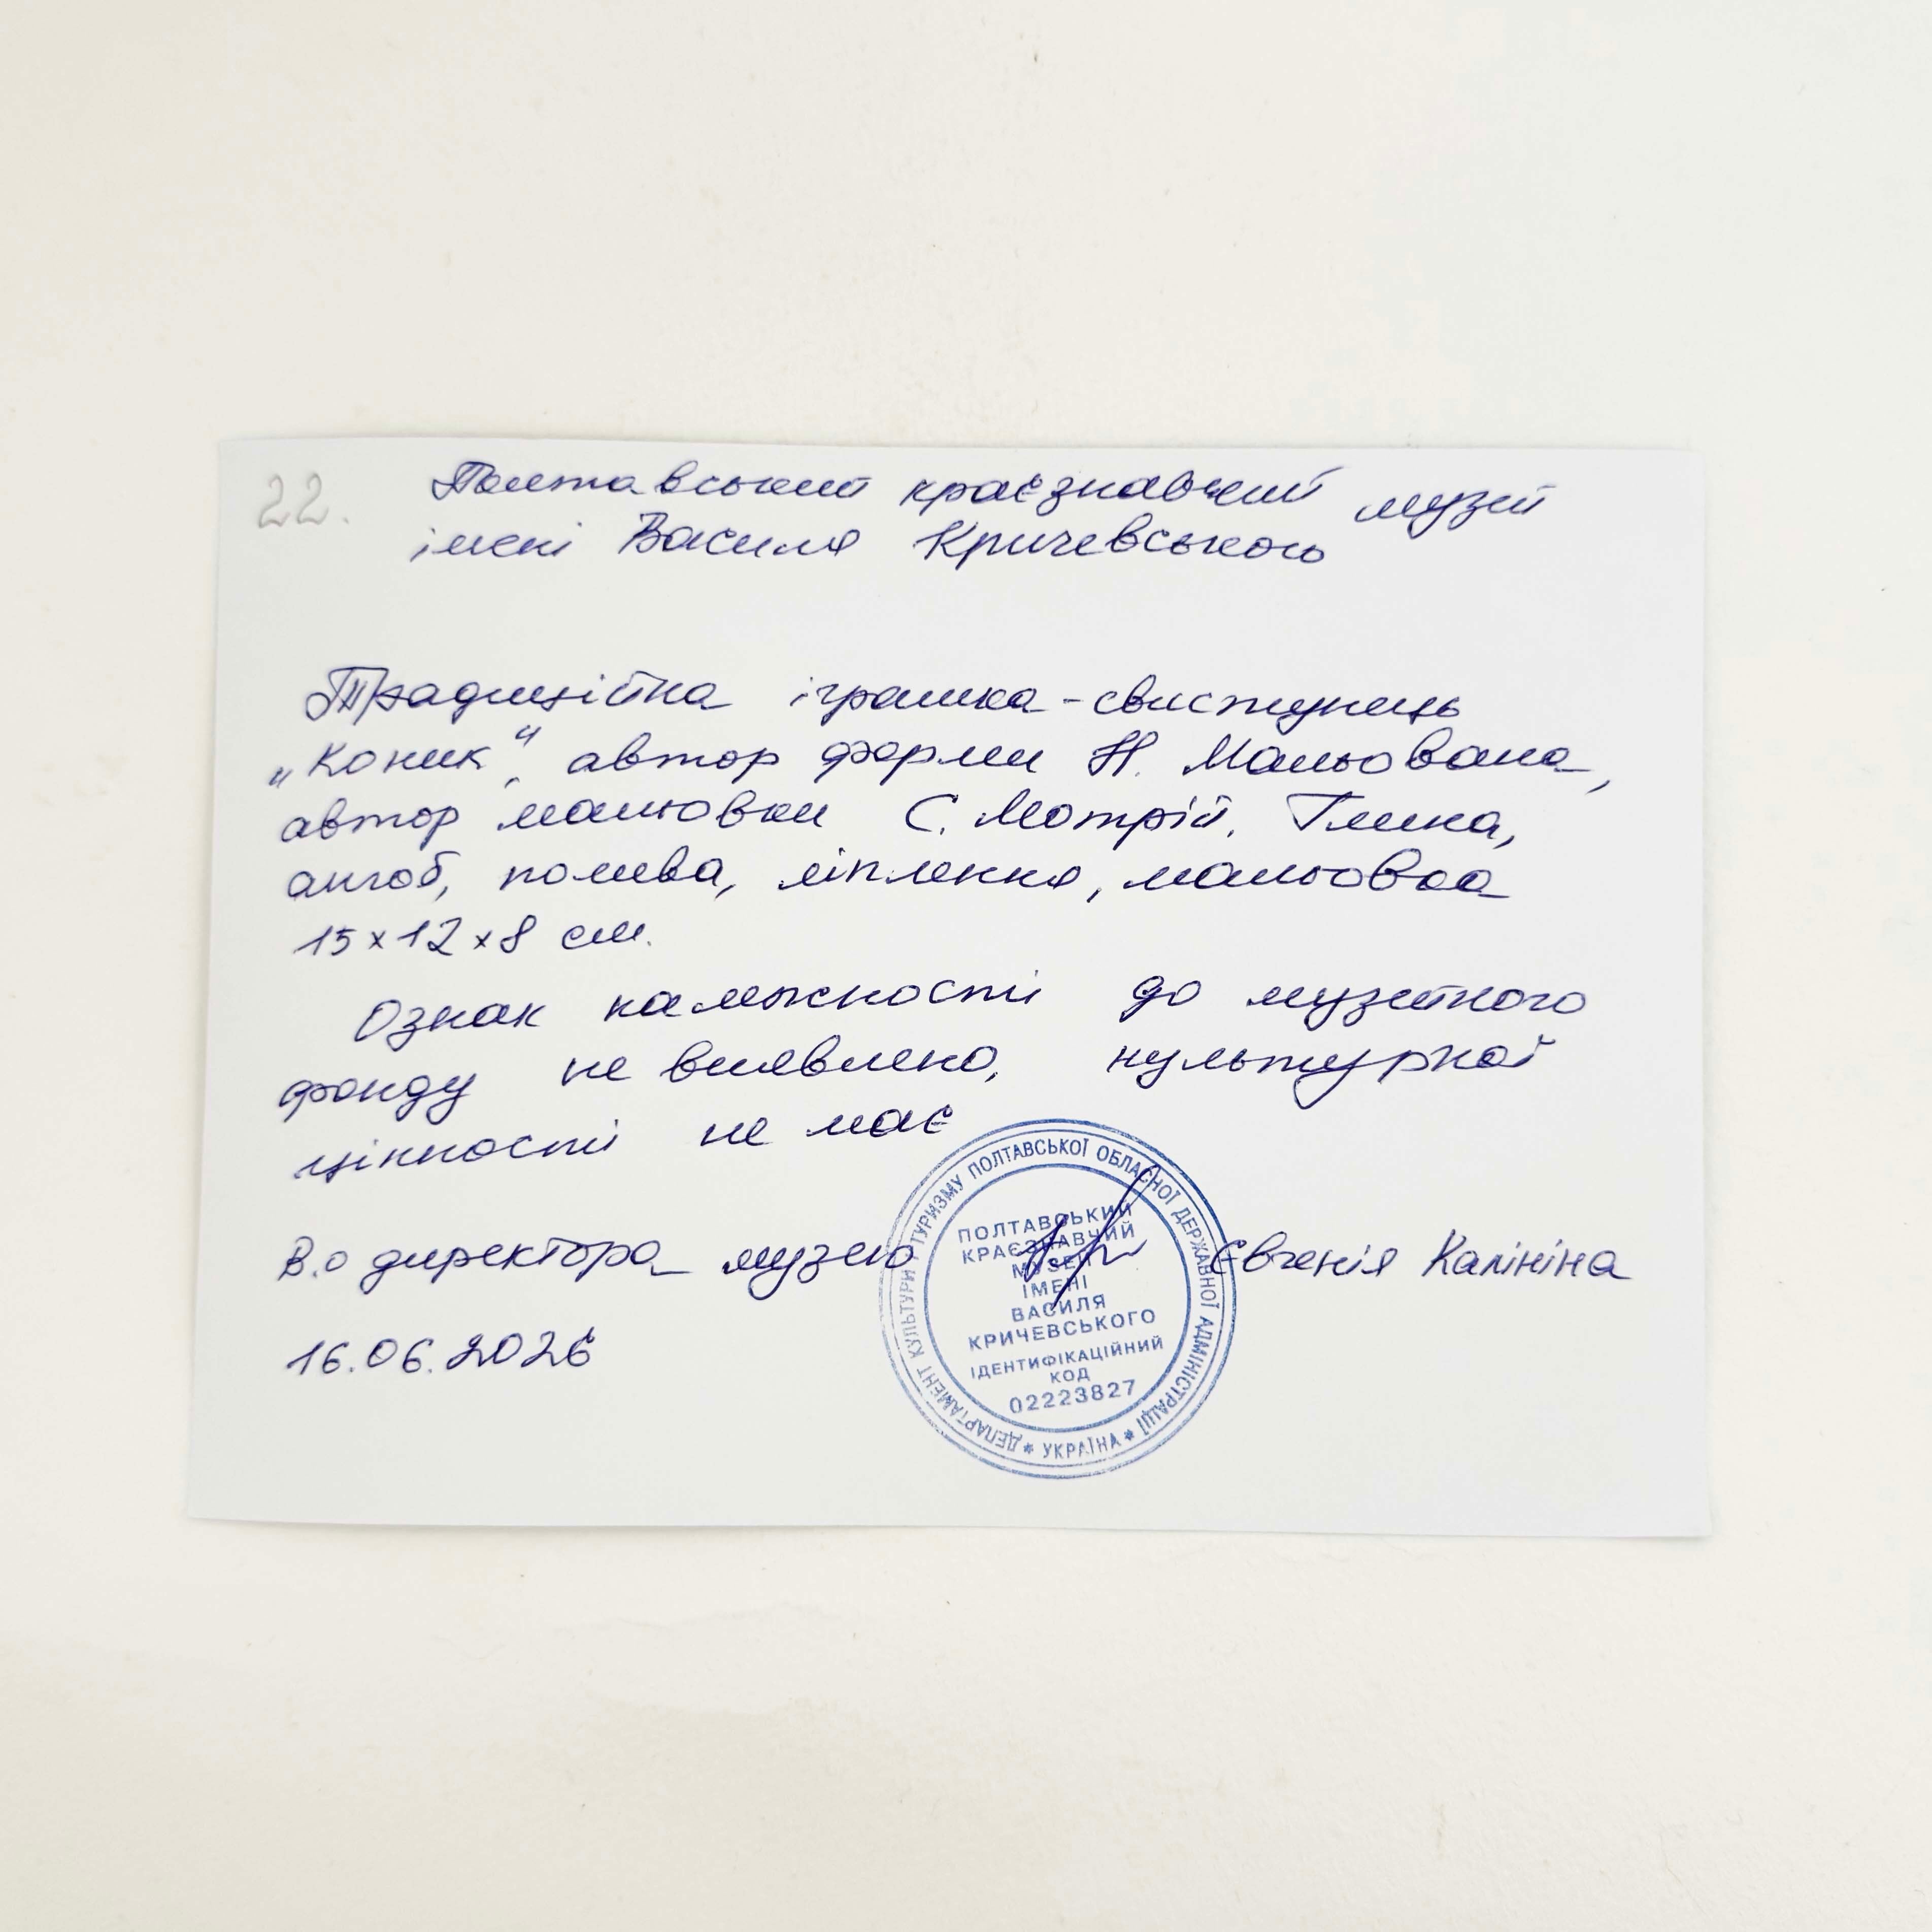 22.
Полтавський краєзнавчий музей
імені Василя Кричевського
Традиційна іграшка-свистунець
„Коник", автор форми Н. Мальована,
автор мальовки С. Мотрій. Глина,
ангоб, полива, ліплення, мальовка
15×12×8 см.
Ознак належності до музейного
фонду не виявлено, культурної
цінності не має
В.о директора музею Євгенія Калініна
16.06.2026
ДЕПАРТАМЕНТ КУЛЬТУРИ І ТУРИЗМУ ПОЛТАВСЬКОЇ ОБЛАСНОЇ ДЕРЖАВНОЇ АДМІНІСТРАЦІЇ * УКРАЇНА *
ПОЛТАВСЬКИЙ
КРАЄЗНАВЧИЙ
МУЗЕЙ
ІМЕНІ
ВАСИЛЯ
КРИЧЕВСЬКОГО
ІДЕНТИФІКАЦІЙНИЙ
КОД
02223827